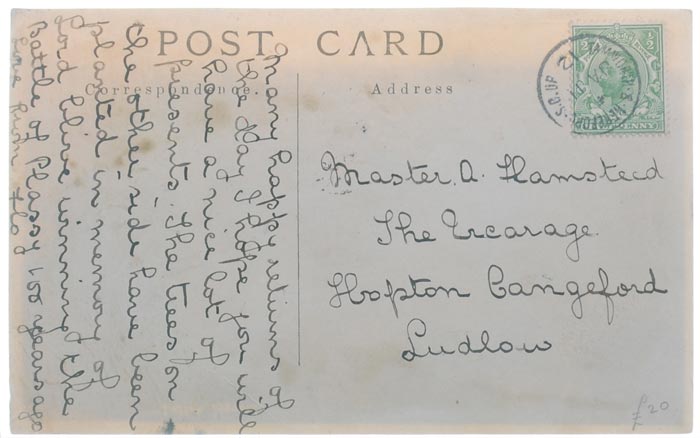 POST CARD
Correspondence.
Address
Many happy returns of
the day I hope you will
have a nice lot of
presents. The trees on
the other side have been
planted in memory of
Lord Clive winning the
Battle of Plassy 100 years ago
Love from Flo
Master. A. Hamsteed
The Vicarage.
Hopton Cangeford
Ludlow
HEREFORD S.O.
1/2
1/2
PENNY
£20